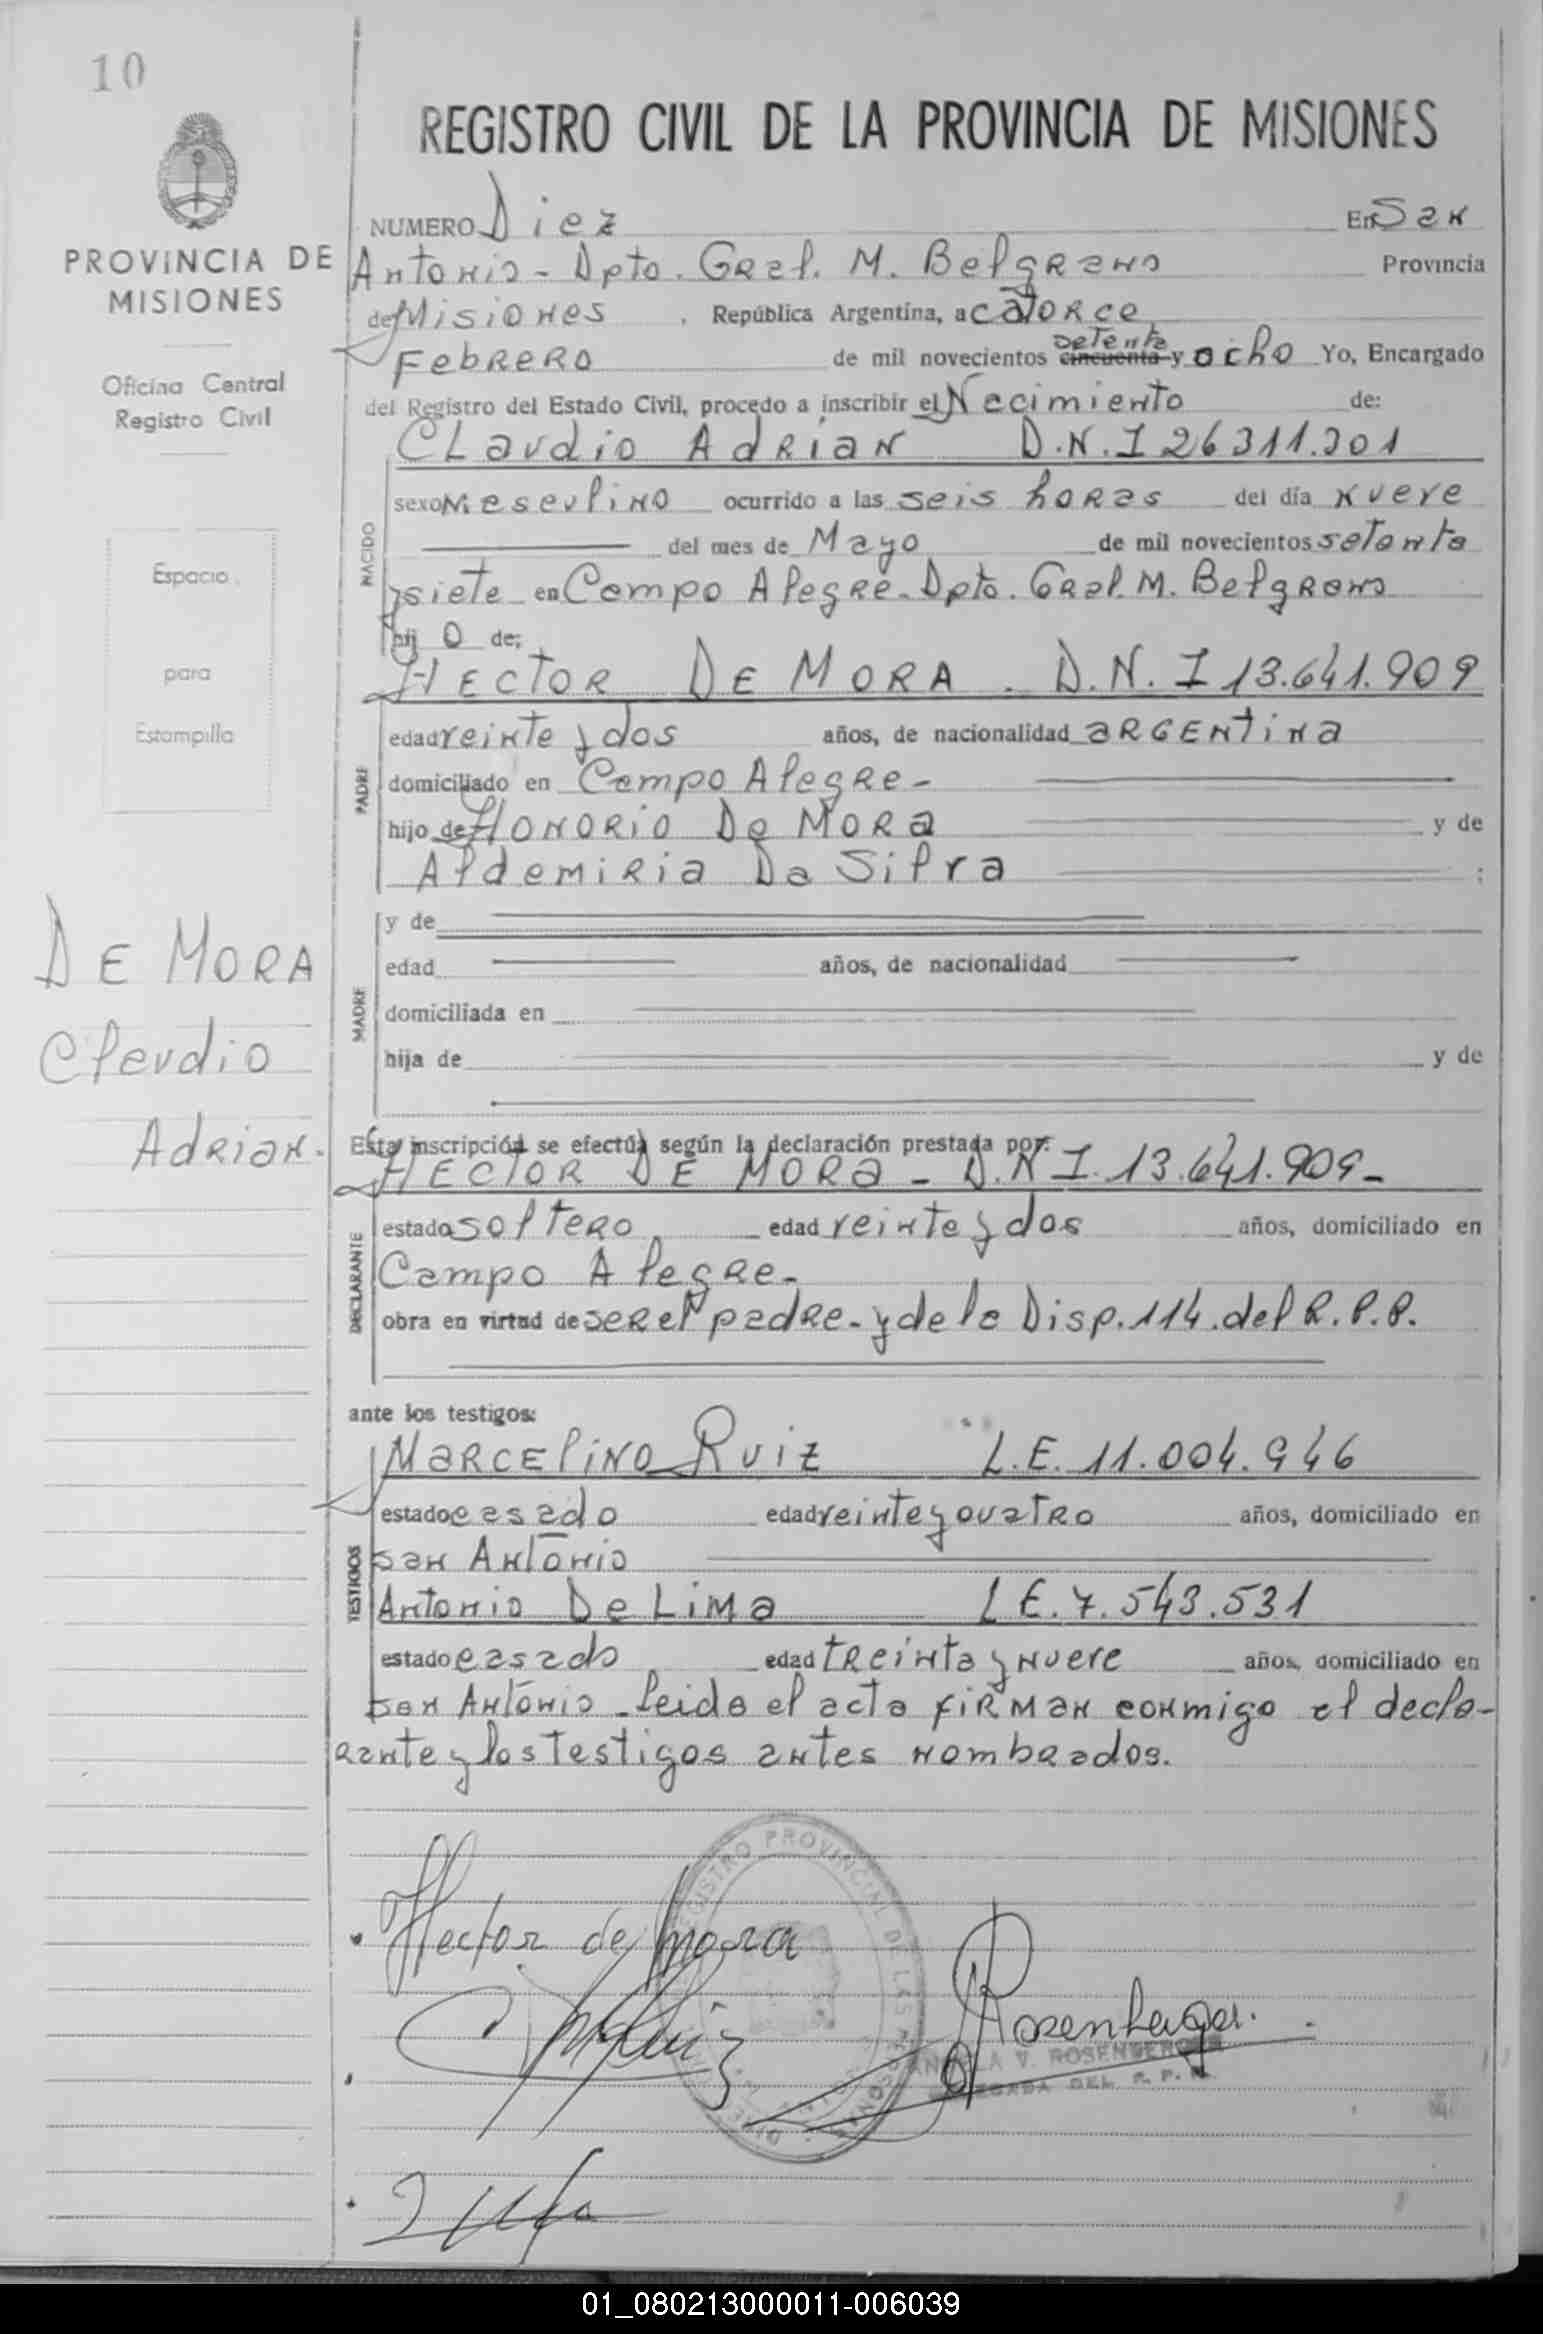 10
REGISTRO CIVIL DE LA PROVINCIA DE MISIONES
PROVINCIA DE
MISIONES
Oficina Central
Registro Civil
Espacio
para
Estampilla
DE MORA
Claudio
Adrian.
NUMERO Diez En San
Antonio - Dpto. Gral. M. Belgrano Provincia
de Misiones , República Argentina, a catorce
Febrero de mil novecientos cincuenta setenta y ocho Yo, Encargado
del Registro del Estado Civil, procedo a inscribir el Nacimiento de:
Claudio Adrian D.N.I 26311.301
NACIDO
sexo masculino ocurrido a las seis horas del día nueve
del mes de Mayo de mil novecientos setenta
y siete en Campo Alegre - Dpto. Gral. M. Belgrano
hij o de:
HECTOR DE MORA . D.N.I 13.641.909
PADRE
edad veinte y dos años, de nacionalidad argentina
domiciliado en Campo Alegre -
hijo de Honorio De Mora y de
Aldemiria Da Silva ;
MADRE
y de
edad años, de nacionalidad
domiciliada en
hija de y de
Esta inscripción se efectúa según la declaración prestada por:
HECTOR DE MORA - D.N.I. 13.641.909 -
DECLARANTE
estado soltero edad veinte y dos años, domiciliado en
Campo Alegre -
obra en virtud de ser el padre - y de la Disp. 114 . del R.P.P.
ante los testigos:
MARCELINO RUIZ L.E. 11.004.946
TESTIGOS
estado casado edad veinte y cuatro años, domiciliado en
san Antonio
Antonio De Lima L.E. 7.543.531
estado casado edad treinta y nueve años, domiciliado en
san Antonio - leida el acta firman conmigo el decla-
rante y los testigos antes nombrados.
Hector de mora
REGISTRO PROVINCIAL DE LAS PERSONAS
V. ROSENBERGER
DEL R. P. P.
01_080213000011-006039